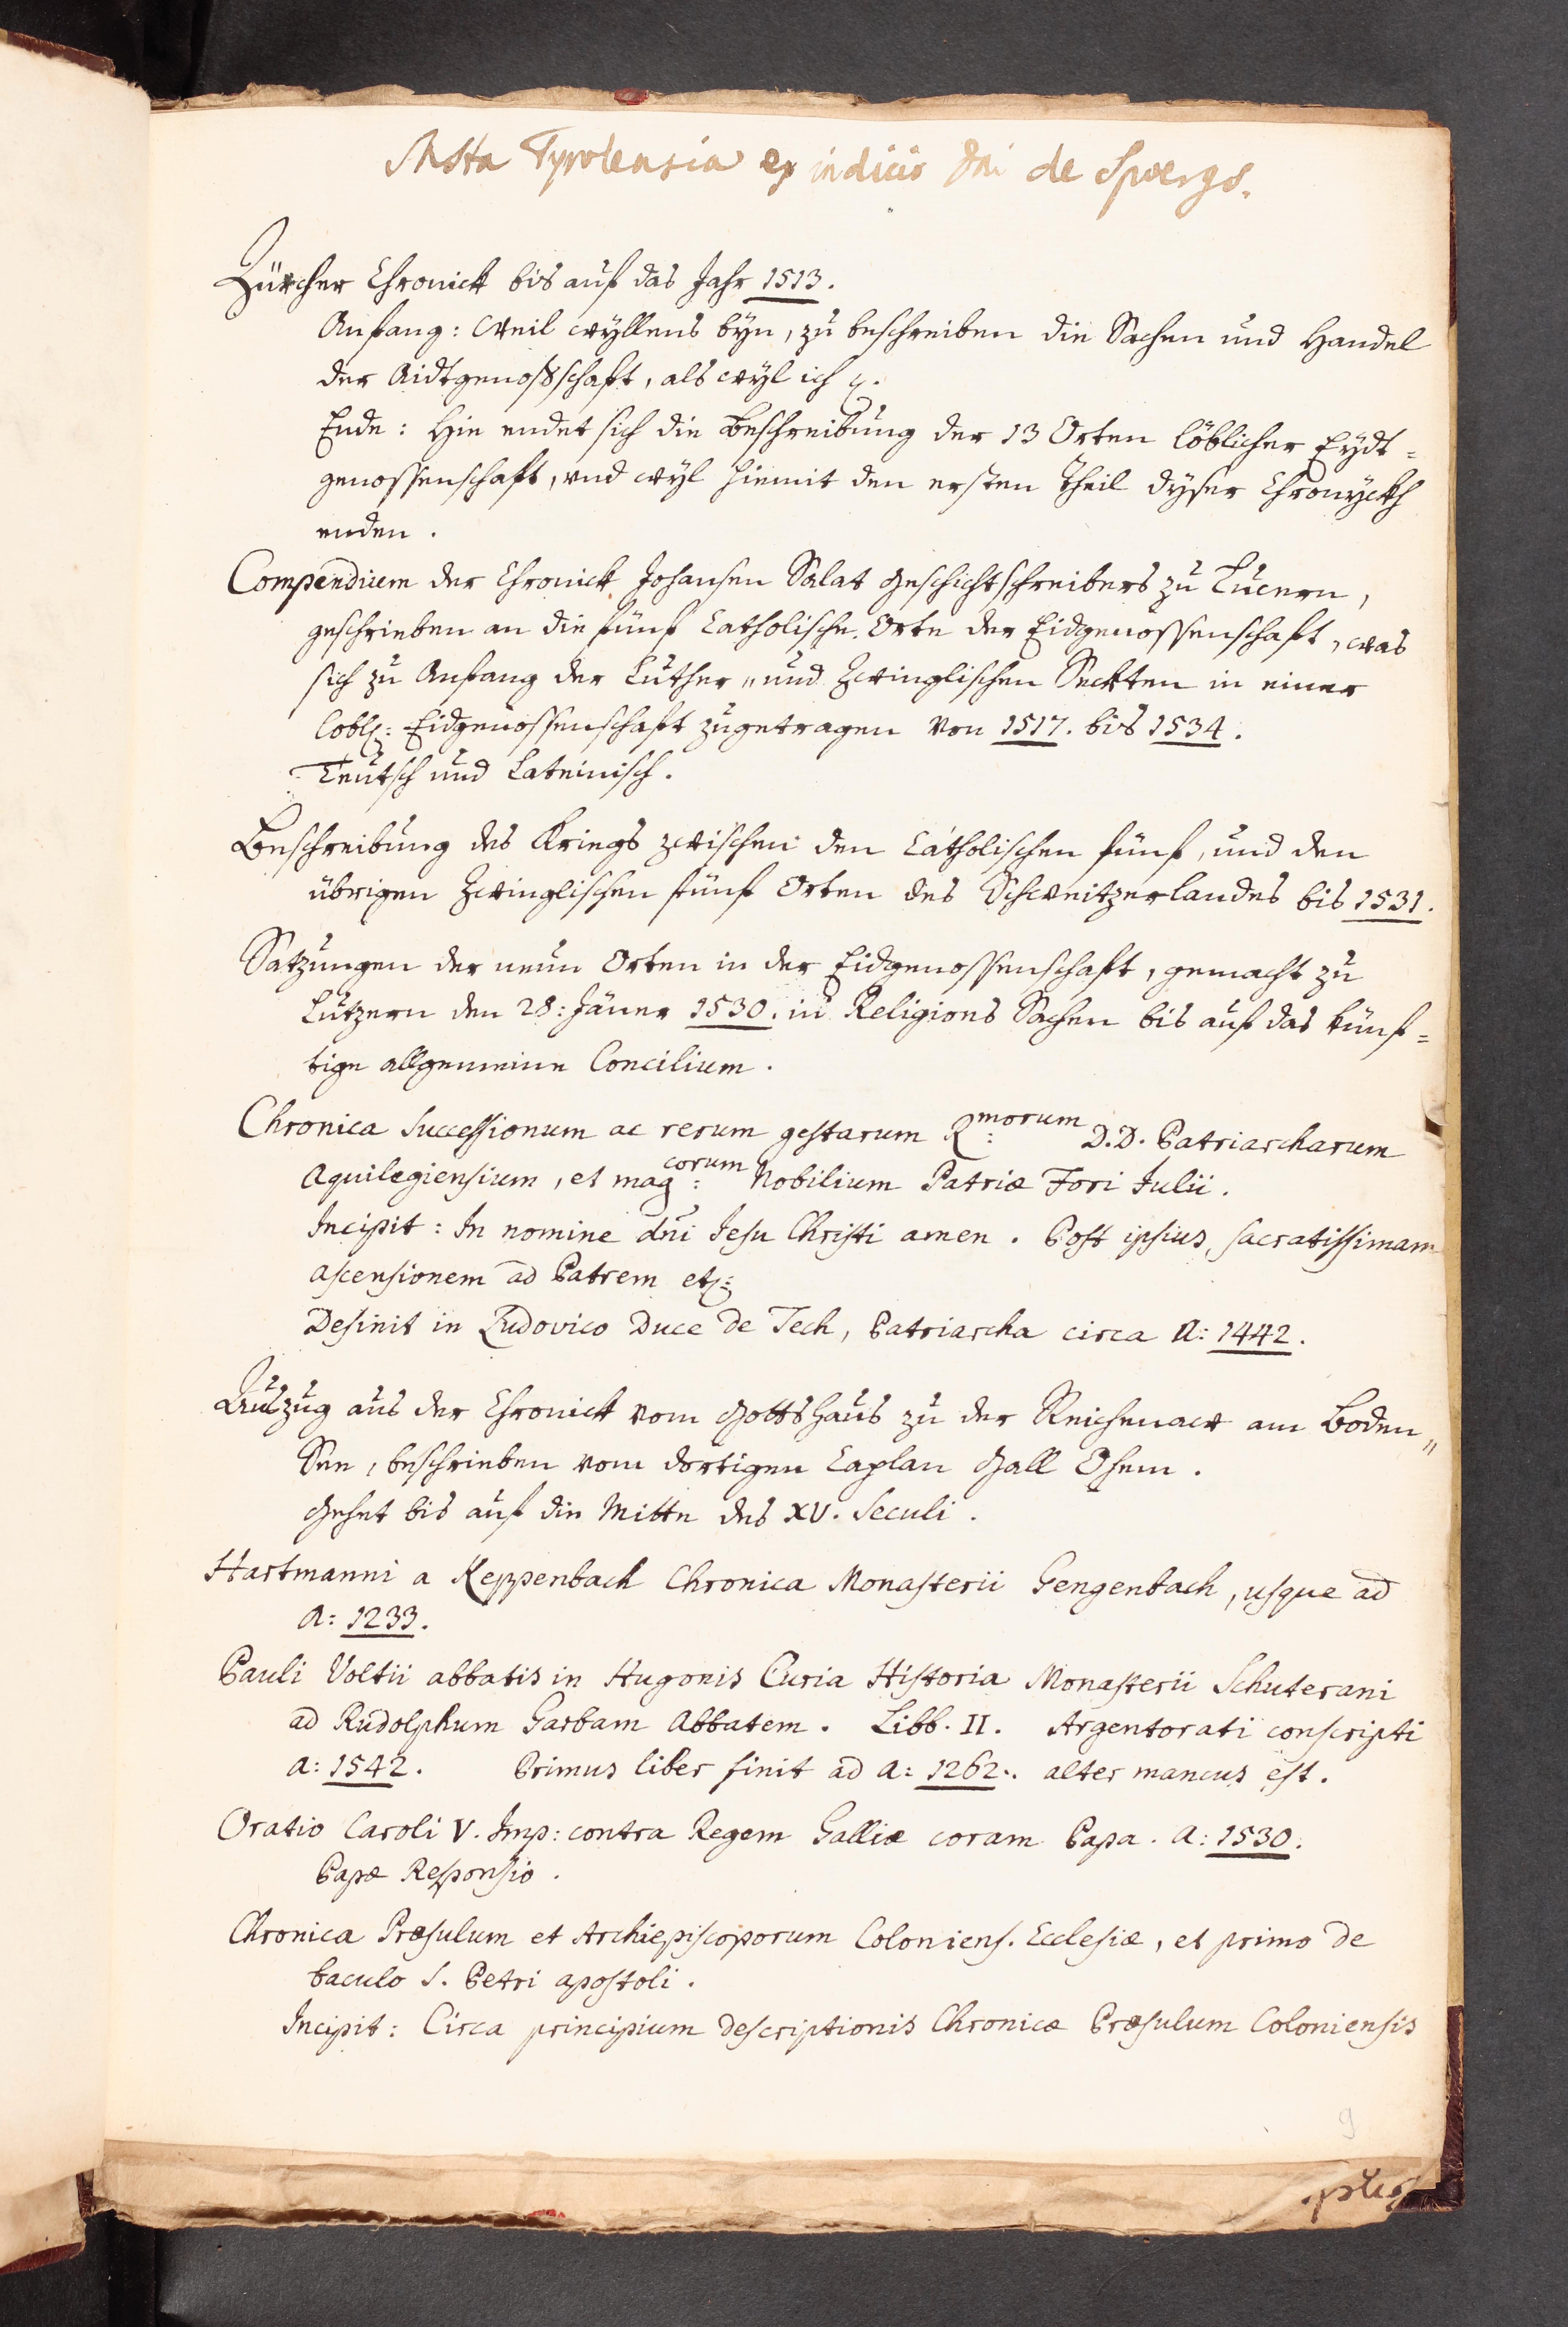 Msta Tyrolensia ex indicio dni de Spergs.
Zürcher Chronick bis auf das Jahr 1513.
Anfang: Weil wyllens byn, zu beschreiben die Sachen und Handel
der Aidtgenoßschaft, als wyl ich
Ende: Hie endet sich die Beschreibung der 13 Orten löblicher Eydt=
genossenschaft, vnd wyl hiemit den ersten Theil dyser Chronyckh
enden.
Compendium der Chronick Johansen Salat Geschichtschreibers zu Lucern,
geschrieben an die fünf Catholische Orte der Eidgenossenschaft, was
sich zu Anfang der Luther„ und Zwinglischen Seckten in einer
Lobl: Eidgenossenschaft zugetragen von 1517. bis 1534.
Teutsch und Lateinisch.
Beschreibung des Kriegs zwischen den Catholischen fünf, und den
übrigen Zwinglischen fünf Orten des Schweitzerlandes bis 1531.
Satzungen der neun Orten in der Eidgenossenschaft, gemacht zu
Lutzern den 28: Jäner 1530. in Religions Sachen bis auf das künf=
tige allgemeine Concilium.
Chronica Successionum ac rerum gestarum R:morum D.D. Patriarcharum
Aquilegiensium, et mag:corum Nobilium Patriæ Fori Julii.
Incipit: In nomine dni Jesu Christi amen. Post ipsius sacratissimam
ascensionem ad Patrem etc:
Desinit in Ludovico Duce de Tech, Patriarcha circa A: 1442.
Auszug aus der Chronick vom Gottshaus zu der Reichenaw am Boden„
See, beschrieben vom dortigen Caplan Gall Ohem.
Gehet bis auf die Mitte des XV. Seculi.
Hartmanni a Keppenbach Chronica Monasterii Gengenbach, usque ad
A: 1233.
Pauli Voltii abbatis in Hugonis Curia Historia Monasterii Schuterani
ad Rudolphum Garbam Abbatem. Libb. II. Argentorati conscripti
a: 1542. Primus liber finit ad A: 1262. alter mancus est.
Oratio Caroli V. Imp: contra Regem Galliæ coram Papa. A: 1530.
Papæ Responsio.
Chronica Præsulum et Archiepiscoporum Coloniens. Ecclesiæ, et primo de
baculo S. Petri apostoli.
Incipit: Circa principium descriptionis Chronicæ Præsulum Coloniensis
9